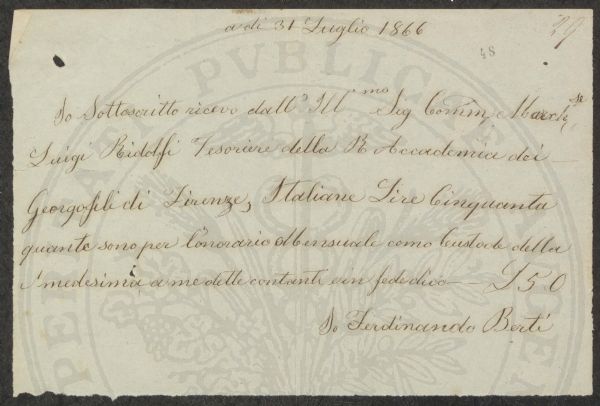 a dì 31 Luglio 1866
29
48
Io Sottoscritto ricevo dall' Ill.mo Sig Comm. e March.se
Luigi Ridolfi Tesoriere della R Accademia dei
Georgofili di Firenze, Italiane Lire Cinquanta
quante sono per l'onorario Mensuale come Custode della
medesima a me dette contanti e in fede dico — £50
Io Ferdinando Berti
PVBLICAE